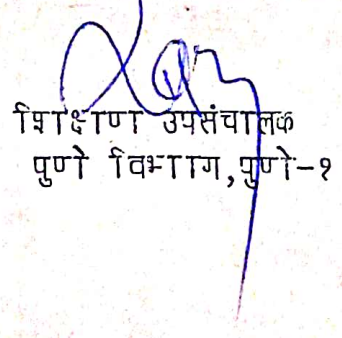 शिक्षण उपसंचालक
पुणे विभाग,पुणे-१